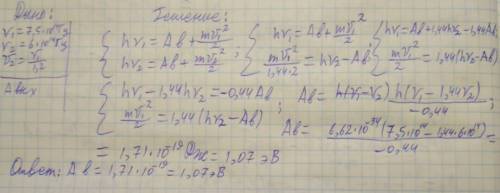 Дано: Решение:
ν₁ = 7,5·10¹⁴ Гц
ν₂ = 6·10¹⁴ Гц
v₂ = v₁/1,2
Aвых
{ hν₁ = Aв + mv₁²/2
hν₂ = Aв + mv₂²/2 ;
{ hν₁ = Aв + mv₁²/2
mv₁²/1,44·2 = hν₂ - Aв ;
{ hν₁ = Aв + 1,44hν₂ - 1,44Aв
mv₁²/2 = 1,44(hν₂ - Aв)
{ hν₁ - 1,44hν₂ = -0,44Aв
mv₁²/2 = 1,44(hν₂ - Aв) ;
Aв = h(ν₁ - 1,44ν₂)/-0,44 ;
Aв = 6,62·10⁻³⁴(7,5·10¹⁴ - 1,44·6·10¹⁴)/-0,44 =
= 1,71·10⁻¹⁹ Дж = 1,07 эВ
Ответ: Aв = 1,71·10⁻¹⁹ = 1,07 эВ